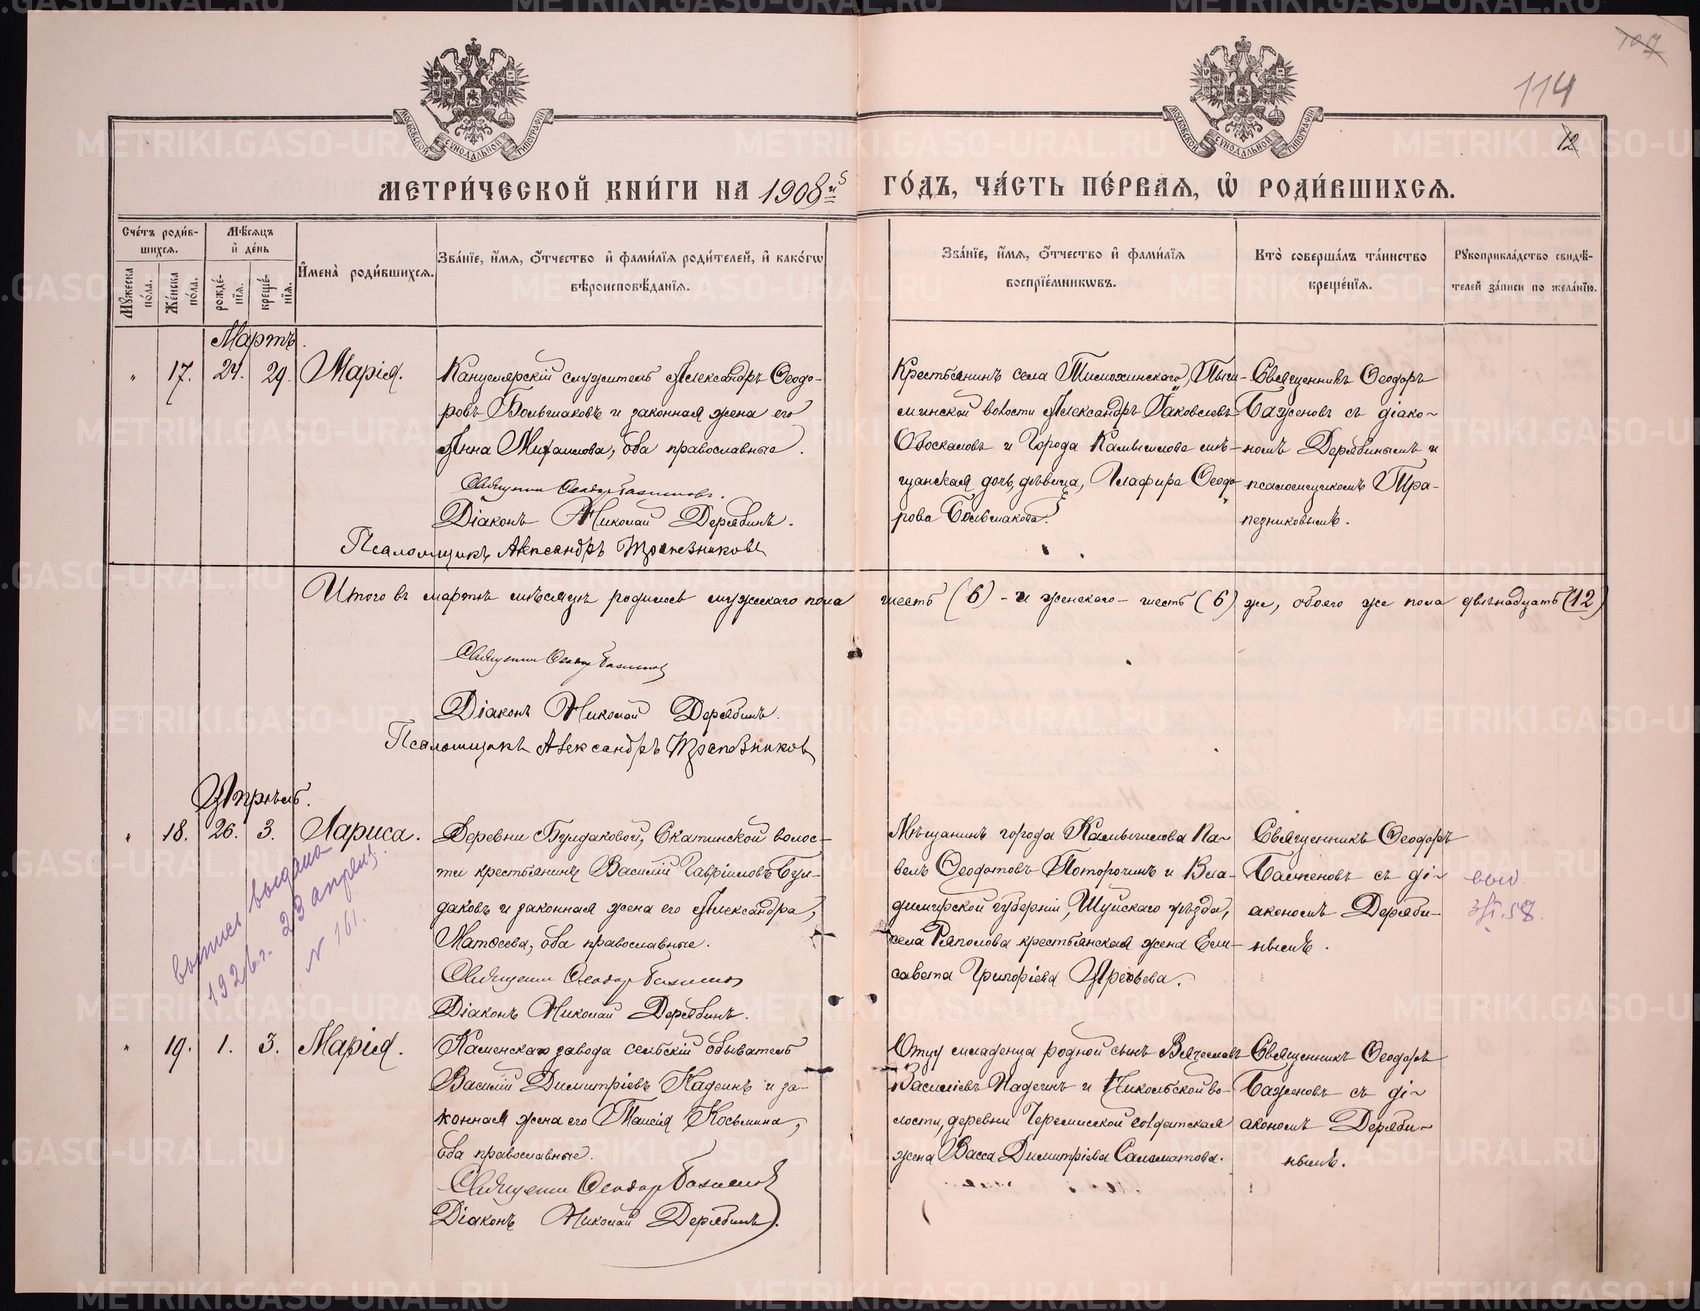 METRIKI.GASO-URAL.RU
МОСКОВСКОЙ СѴНОДАЛЬНОЙ ТИПОГРАФІИ
МОСКОВСКОЙ СѴНОДАЛЬНОЙ ТИПОГРАФІИ
107
114
12
МЕТРИ́ЧЕСКОЙ КНИ́ГИ НА 1908й
ГО́ДЪ, ЧА́СТЬ ПЕ́РВАЯ, Ѿ РОДИ́ВШИХСЯ.
Сче́тъ роди́вшихся.
Му́жеска по́ла.
Же́нска по́ла.
Мѣ́сяцъ и де́нь
рожде́нїя.
креще́нїя.
И̓мена̀ роди́вшихся.
Зва́нїе, и́мя, ѻ́тчество и҆ фами́лїя роди́телей, и҆ како́гѡ вѣроисповѣ́данїя.
Зва́нїе, и́мя, ѻ́тчество и҆ фами́лїя воспрїе́мникѡвъ.
Кто̀ соверша́лъ та́инство креще́нїя.
Рꙋкоприкла́дство свидѣ́телей за́писи по жела́нїю.
Мартъ.
" 17. 24. 29. Марія.
Канцелярскій служитель Александръ Ѳеодо-
ровъ Большаковъ и законная жена его
Анна Михаилова, оба православные.
Священник Ѳеодор Баженовъ.
Діаконъ Николай Дерябинъ.
Псаломщикъ Александръ Трапезниковъ
Крестьянинъ села Тимохинскаго, Пыш-
минской волости Александръ Іаковлевъ
Обоскаловъ и города Камышлова мѣ-
щанская дочь, дѣвица, Глафира Ѳеодо-
рова Большакова.
Священникъ Ѳеодоръ
Баженовъ съ діако-
номъ Дерябинымъ и
псаломщикомъ Тра-
пезниковымъ.
Итого въ мартѣ мѣсяцѣ родилось мужскаго пола шесть (6) - и женскаго - шесть (6) же, обоего же пола двѣнадцать (12)
Священник Ѳеодор Баженов
Діаконъ Николай Дерябинъ.
Псаломщикъ Александръ Трапезников
Апрѣль.
" 18. 26. 3. Лариса.
Деревни Булдаковой, Скатинской волос-
ти крестьянинъ Василій Гавріиловъ Бул-
даковъ и законная жена его Александра
Матѳеева, оба православные.
Священник Ѳеодор Баженов
Діаконъ Николай Дерябинъ.
Мѣщанинъ города Камышлова Па-
велъ Ѳеодотовъ Поторочинъ и Вла-
димірской губерніи, Шуйскаго уѣзда,
села Ряполова крестьянская жена Ели-
савета Григоріева Арефьева.
Священникъ Ѳеодоръ
Баженовъ съ ді-
акономъ Деряби-
нымъ.
выпись выдана
1926 г. 23 апреля
№ 161.
" 19. 1. 3. Марія.
Каменскаго завода сельскій обыватель
Василій Димитріевъ Надеинъ и за-
конная жена его Таисія Косьмина,
оба православные.
Священник Ѳеодор Баженов
Діаконъ Николай Дерябинъ.
Отцу младенца родной сынъ Вячеславъ
Василіевъ Надеинъ и Никольской во-
лости, деревни Черемисской солдатская
жена Васса Димитріева Саломатова.
Священникъ Ѳеодоръ
Баженовъ съ ді-
акономъ Деряби-
нымъ.